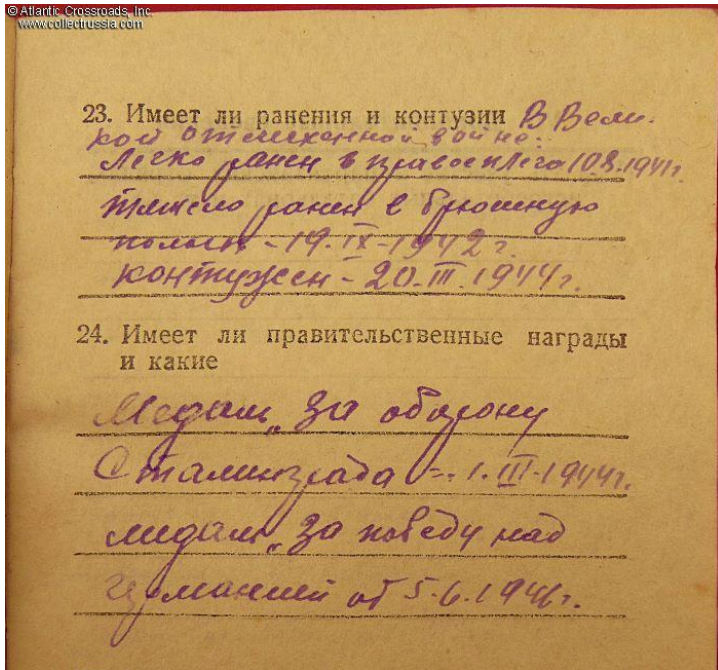 © Atlantic Crossroads, Inc.
www.collectrussia.com
23. Имеет ли ранения и контузии В Вели-
кой Отечественной войне:
Легко ранен в правое плечо 10.8.1941г.
тяжело ранен в брюшную
полость - 19.IX-1942г.
контужен - 20.III.1944г.
24. Имеет ли правительственные награды
и какие
Медаль „За оборону
Сталинграда =. 1.III-1944г.
медаль „За победу над
германией от 5.6.1946г.